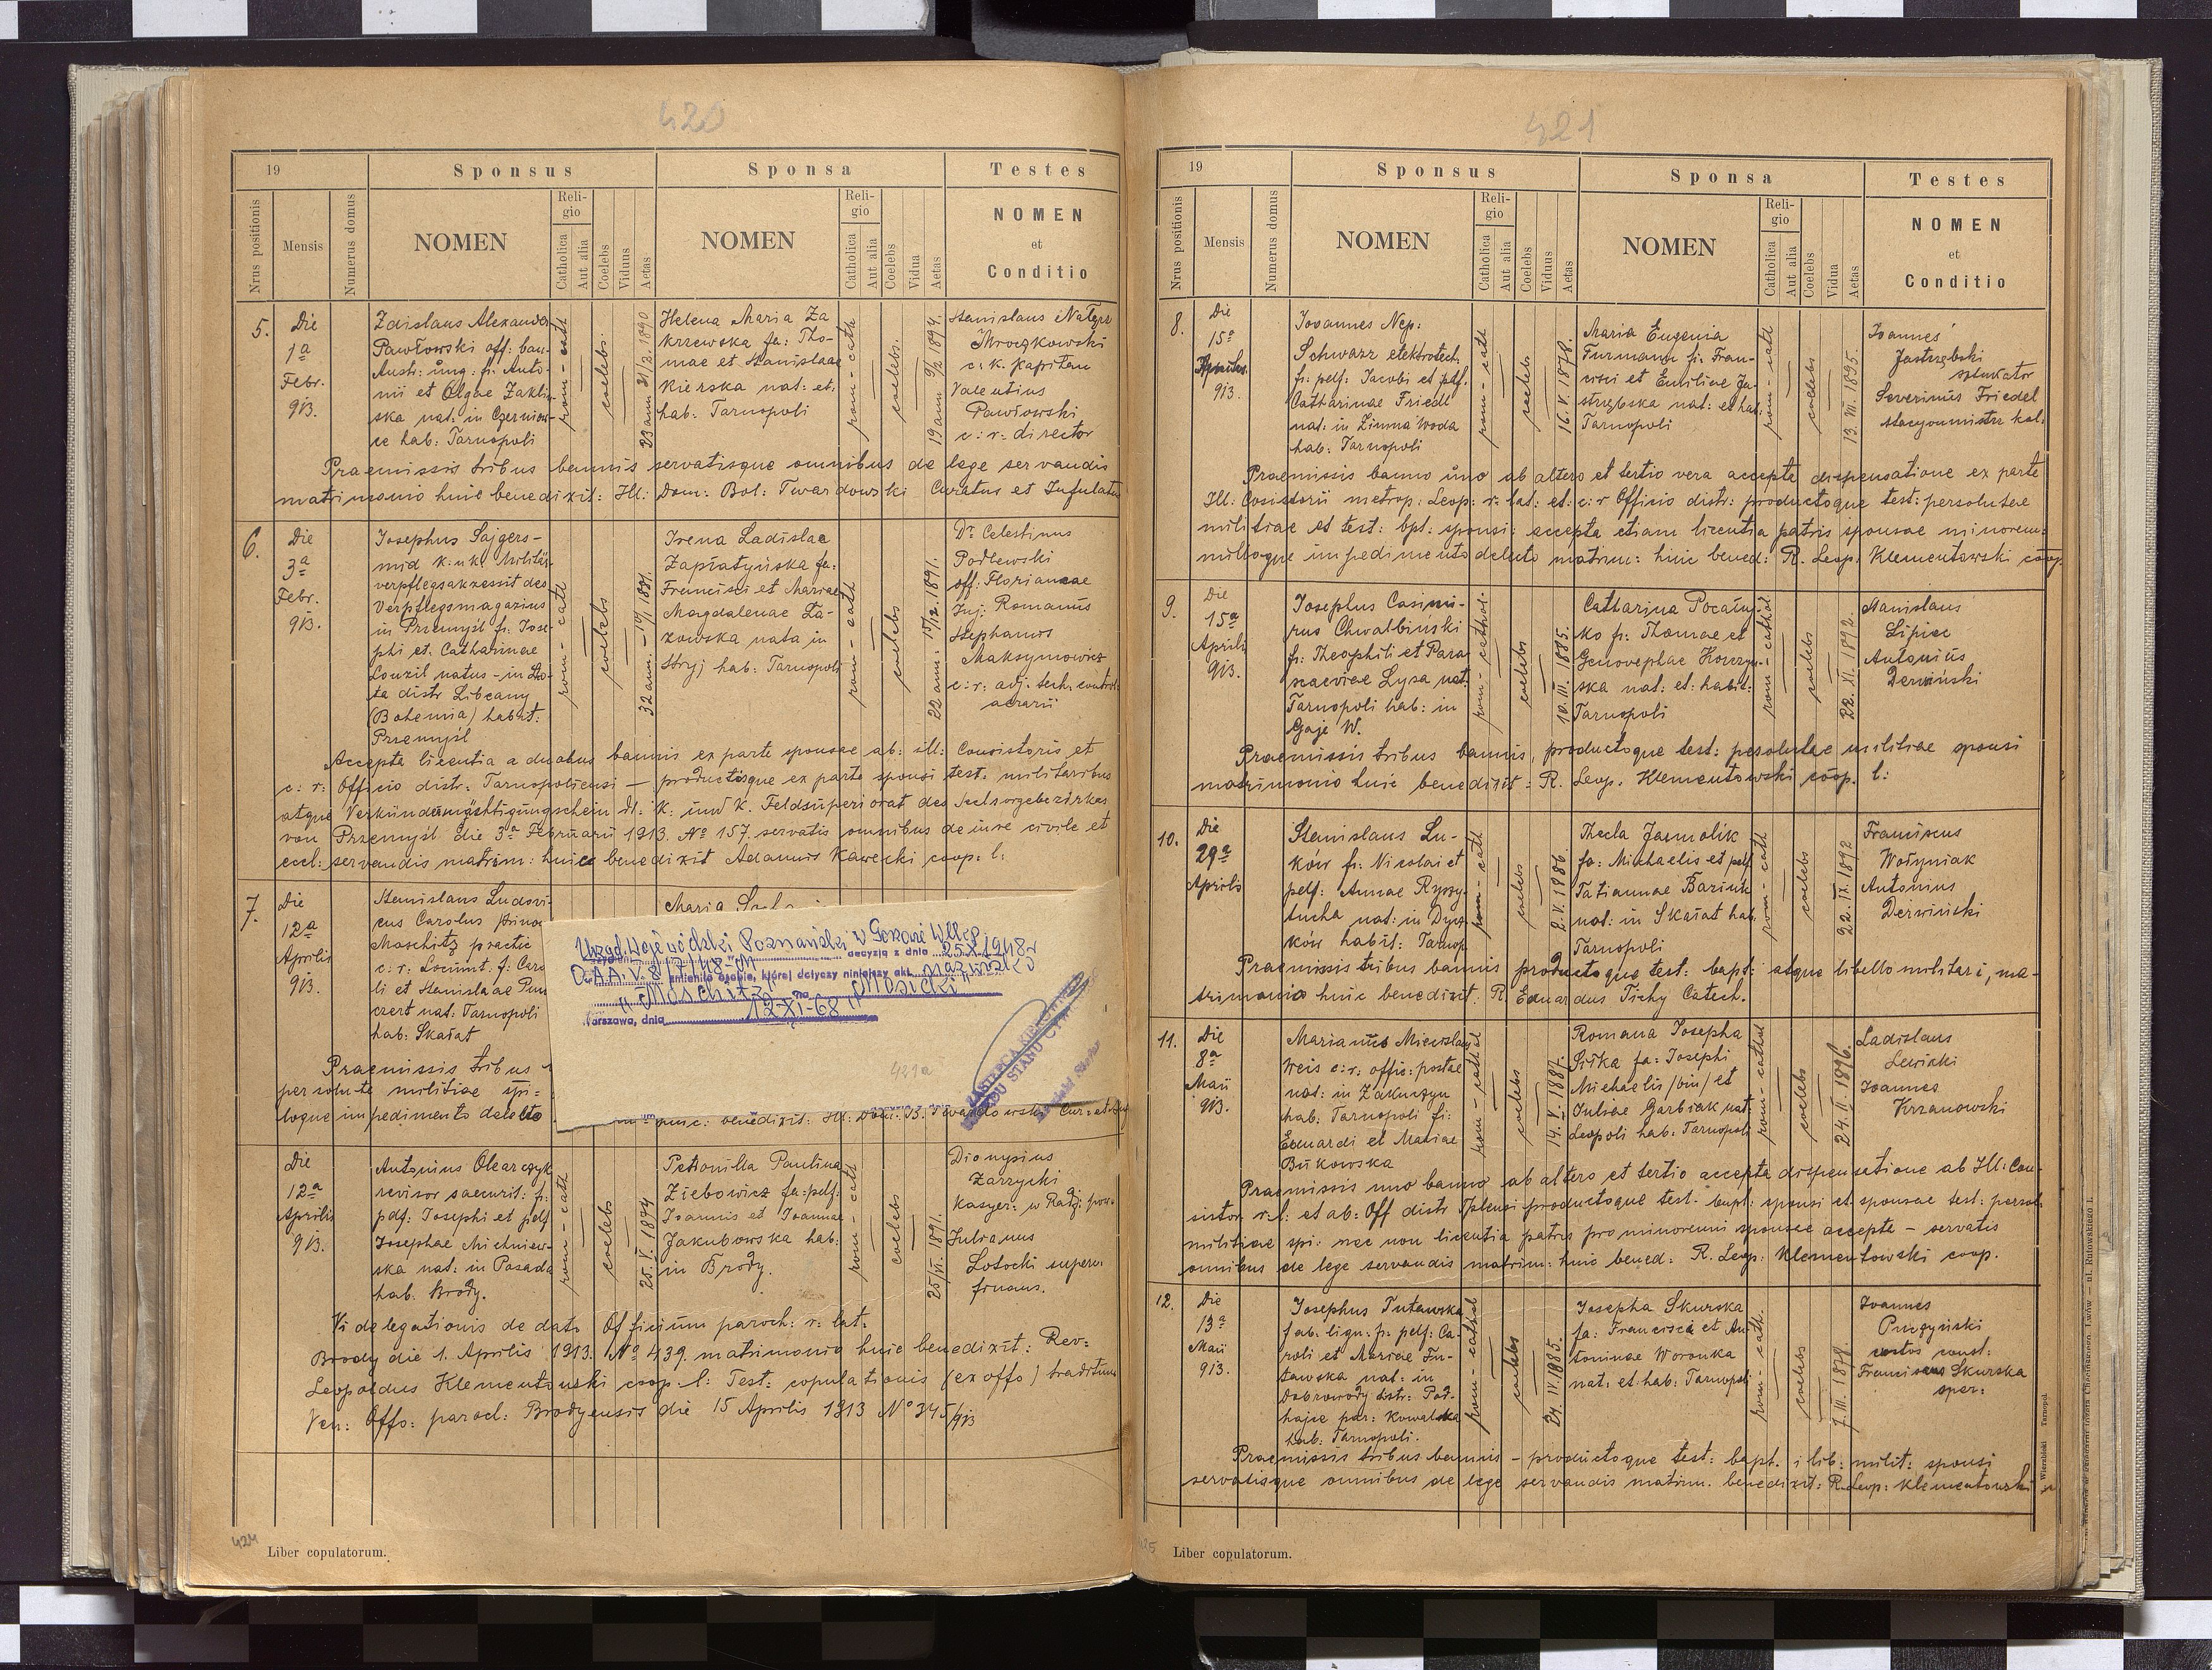 420
19
Sponsus
Sponsa
Testes
Nrus positionis
Mensis
Numerus domus
NOMEN
Religio
Catholica
Aut alia
Coelebs
Viduus
Aetas
NOMEN
Religio
Catholica
Aut alia
Coelebs
Vidua
Aetas
NOMEN
et
Conditio
5.
Die
1a
Febr.
913.
Zdislaus Alexander
Pawłowski off: ban.
Austr: ung: fi: Anto-
nii et Olgae Zaklin-
ska nat: in Czerniow-
ce hab: Tarnopoli
rom-cath
coelebs.
23 ann 31/3 1890
Helena Maria Za
krzewska fa: Tho-
mae et Stanislaae
Kierska nat: et.
hab: Tarnopoli
rom-cath
coelebs.
19 ann 9/2 1894.
Stanislaus
Mroczkowski
c. k. Kapitan
Valentius
Pawłowski
c: r: director
Praemissis tribus bannis servatisque omnibus de lege servandis
matrimonio huic benedixit: Ill: Dom: Bol: Twardowski Curatus et Infulatus
6.
Die
3a
Febr.
913.
Josephus Sajgers-
mid k. u k. Militär-
verpflegsakzessit des
Verpflegsmagazins
in Przemyśl fi: Jose-
phi et. Catharinae
Louzil natus - in Lho-
ta distr Libčany
(Bohemia) habit:
Przemyśl
rom-cath
coelebs
Irena Ladislaa
Zapłatyńska fa:
Francisci et Mariae
Magdalenae Ła-
zowska nata in
Stryj hab: Tarnopoli
rom-cath
coelebs
22 ann: 15/12. 1891.
Dr Celestinus
Podlewski
off: Florianeae
Inj: Romanus
Stephanus
Maksymowicz
c: r: adj. tech: control
aerarii
Accepta licentia a duobus bannis ex parte sponsae ab: ill: Consistoris et
c: r: Officio distr: Tarnopoliensi — productisque ex parte sponsi test: militaribus
atque Verkündermächtigungschein dt: K. und K. Feldsuperiorat des Seelsorgebezirkes
von Przemyśl die 3a Februarii 1913. No 157. servatis omnibus de iure civile et
eccl: servandis matrim: huic benedixit Adamus Kawecki coop. l:
7.
Die
12a
Aprilis
913.
Stanislaus Ludovi-
cus Carolus
Moschitz practic
c: r: Locumt. f: Caro
li et Stanislaae
czert nat: Tarnopoli
hab: Skałat
Maria
Urząd Wojewódzki Poznański w Gorzowie Wlkp
decyzją z dnia 25.X.1948 r
zmieniło osobie, której dotyczy niniejszy akt nazwisko
"Moschitz" na "Mosicki"
Warszawa, dnia 12-XI-68
421a
Praemissis tribus
persolute militiae spi:
loque impedimento detecto
huic: benedixit: Ill: Dom: B: Twardowski Curatus
Die
12a
Aprilis
913.
Antonius Olearczyk
revisor saecurit: fi:
pdf: Josephi et pdf
Josephae Michniew-
ska nat: in Posada
hab. Brody.
rom-cath
coelebs
25. V. 1874
Petronilla Paulina
Ziebowicz fa: pelf:
Joannis et Joannae
Jakubowska hab:
in Brody.
rom-cath
coelebs
25/VI. 1891.
Dionysius
Zarzycki
Kasyer: w Radzi: pow.
Julianus
Łotocki superv.
finans.
Vi delegationis de dato Officium paroch: r: lat:
Brody die 1. Aprilis 1913. No 439. matrimonio huic benedixit: Rev:
Leopoldus Klementowski coop. l: Test: copulationis (ex offo) traditum
Ven: Offo: paroch: Brodyensis die 15 Aprilis 1913 No 345/913
424
Liber copulatorum.
421
19
Sponsus
Sponsa
Testes
Nrus positionis
Mensis
Numerus domus
NOMEN
Religio
Catholica
Aut alia
Coelebs
Viduus
Aetas
NOMEN
Religio
Catholica
Aut alia
Coelebs
Vidua
Aetas
NOMEN
et
Conditio
8.
Die
15a
Aprilis
913.
Joannes Nep:
Schwarz elektrotech.
fi: pelf: Jacobi et pelf.
Catharinae Friedl
nat: in Zimna Woda
hab: Tarnopoli
rom-cath
coelebs
16. V. 1878.
Maria Eugenia
Furmann fi: Fran-
cisci et Emiliae Ja-
strzębska nat: et hab:
Tarnopoli
rom-cath
coelebs
13. VII. 1895.
Joannes
Jastrzębski
Severinus Friedel
Praemissis banno uno ab altero et tertio vera accepta dispensatione ex parte
Ill: Cosistorii metrop: Leop: r: lat: et: c: r Officio distr: productoque test: persolutae
militiae et test: bpt: sponsi: accepta etiam licentia patris sponsae minorem:
nulloque impedimento detecto matrim: huic bened: R. Leop: Klementowski coop.
9.
Die
15a
Aprilis
913.
Josephus Casimi-
rus Chwalbiński
fi: Theophili et Para
scaeviae Lysa nat:
Tarnopoli hab: in
Gaje W.
rom-cathol.
coelebs
10. III. 1885.
Catharina
ko fi: Thomae et
Genovephae
ska nat: et: habit:
Tarnopoli
rom-cathol
coelebs
22. XI. 1892.
Stanislaus
Lipiec
Antonius
Derwiński
Praemissis tribus bannis, productoque test: pesolutae militiae sponsi
matrimonio huic benedixit: R. Leop. Klementowski coop. l:
10.
Die
29a
Aprilis
Stanislaus Lu-
ków fi: Nicolai et
pelf: Annae Ryzy-
tucha nat: in Dycz-
ków habit: Tarnop
rom-cath
coelebs
2. V. 1886.
Thecla Jarmolik
fa: Michaelis et pelf
Tatiannae Bariuk
nat: in Skałat hab.
Tarnopoli
rom-cath
coelebs
22. IX. 1892
Franciscus
Wołyniak
Antonius
Derwiński
Praemissis tribus bannis productoque test: bapt: atque libello militari, ma-
trimonio huic benedixit: R Eduardus Tichy Catech.
11.
Die
8a
Maii
913.
Marianus Mieceslaus
Weis c: r: offic: postae
nat: in
hab. Tarnopoli fi:
Eduardi et Mariae
Bukowska
rom-cathol
coelebs
14. V. 1887.
Romana Josepha
Sitka fa: Josephi
Michaelis /bin/ et
Juliae Garbiak nat:
Leopoli hab: Tarnopoli
rom-cathol
coelebs
24. II. 1896.
Ladislaus
Lewicki
Joannes
Krzanowski
Praemissis uno banno ab altero et tertio accepta dispensatione ab Ill: Con-
sistor. r. l: et ab: Off distr Tplensi productoque test. bapt: sponsi et sponsae test: persol.
militiae spi: nec non licentia patris pro minorenni sponsae accepta - servatis
omnibus de lege servandis matrim: huic bened: R. Leop: Klementowski coop.
12.
Die
13a
Maii
913.
Josephus Tutawska
fab. lign. fi: pelf: Ca-
roli et Mariae Tu-
tawska nat: in
Dobrowody distr: Pod-
hajce par: Kowalska
hab: Tarnopoli.
rom-cathol
coelebs
24. IV. 1885.
Josepha Skurska
fa: Francisci et An-
toninae Woronka
nat: et. hab: Tarnopoli
rom-cath.
coelebs
7. III. 1878
Joannes
custos const:
Franciscus Skurska
Praemissis tribus bannis - productoque test: bapt. i lib: milit: sponsi
servatisque omnibus de lege servandis matrim. benedixit: R. Leop: Klementowski
Liber copulatorum.